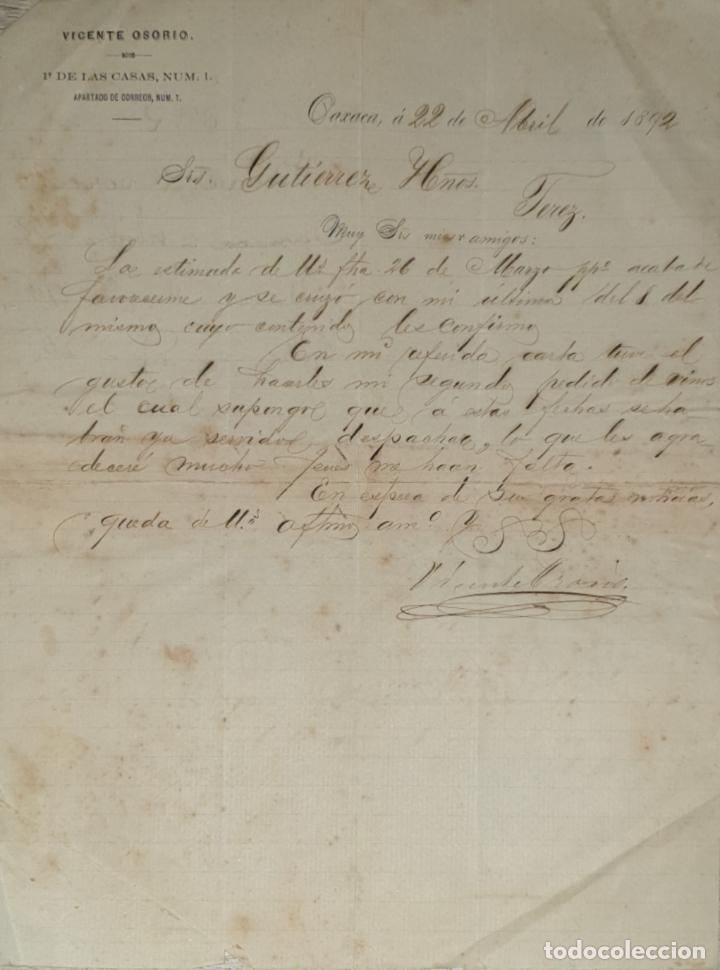 VICENTE OSORIO.
1ª DE LAS CASAS, NUM. 1.
APARTADO DE CORREOS, NUM. 1.
Oaxaca, á 22 de Abril de 1892
Srs. Gutierrez Hnos.
Jerez.
Muy Srs mios y amigos:
La estimada de Us. fha. 26 de Marzo ppº acaba de
favorecerme y se cruzó con mi última del 1 del
mismo cuyo contenido les confirmo
En mi referida carta tuve el
gusto de hacerles mi segundo pedido de vinos
el cual supongo que á estas fechas se ha
brán ya servido despachar, lo que les agra
deceré mucho pues me hacen falta.
En espera de sus gratas noticias,
queda de Us. afmo amº y SS
Vicente Osorio.
todocoleccion